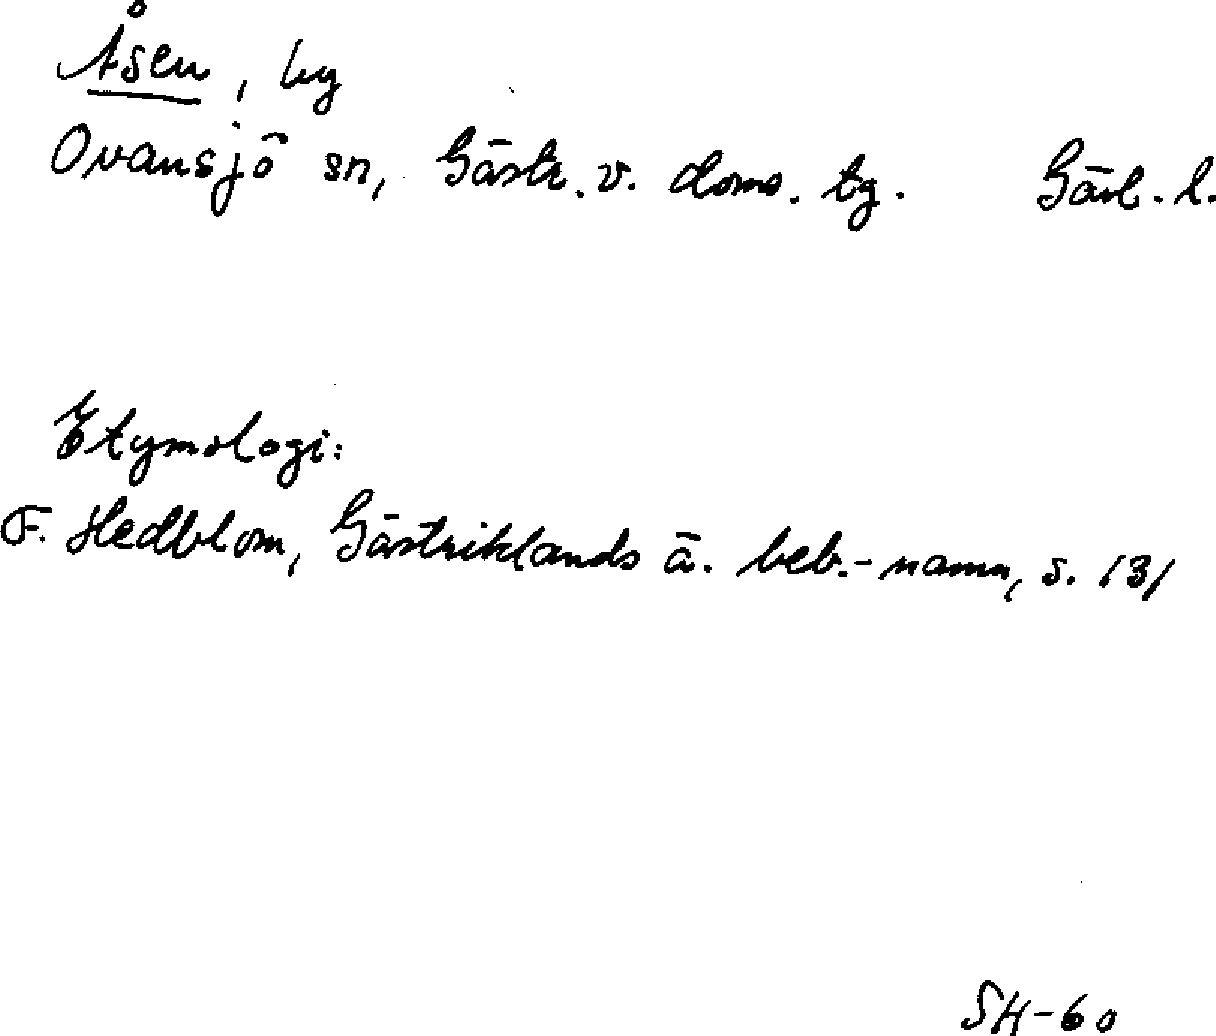 Åsen, by
Ovansjö sn, Gästr. v. doms. tg. Gävl. l.
Etymologi:
F. Hedblom, Gästriklands ä. beb.-namn, s. 131
SH-60